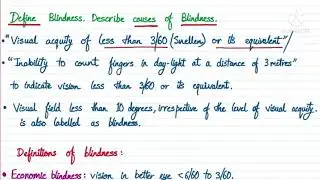 Define Blindness. Describe causes of Blindness.
• "Visual acquity of less than 3/60 (Snellen) or its equivalent"
• "Inability to count fingers in day-light at a distance of 3 metres"
to indicate vision less than 3/60 or its equivalent.
• Visual field less than 10 degrees, irrespective of the level of visual acquity.
is also labelled as blindness.
Definitions of blindness:
• Economic blindness: vision in better eye <6/60 to 3/60.